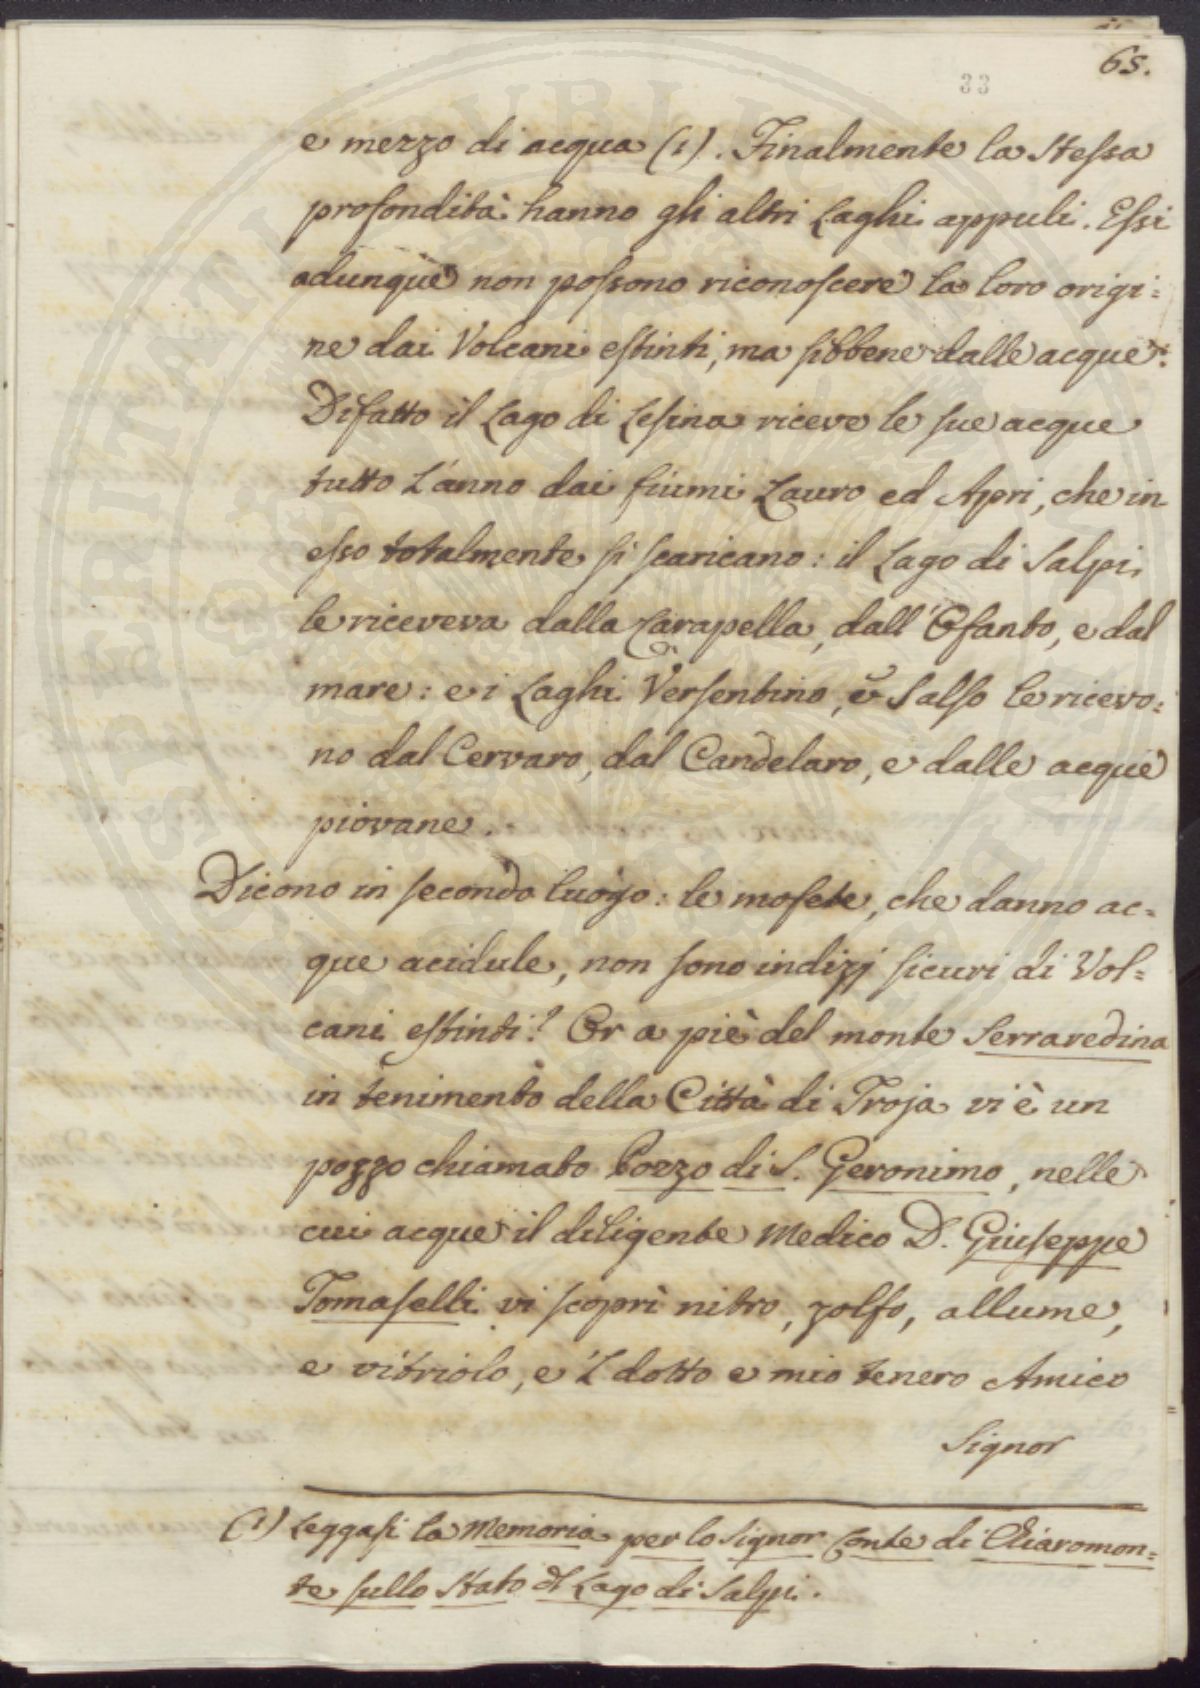 65.
33
e mezzo di acqua (1). Finalmente la stessa
profondità hanno gli altri Laghi appuli. Essi
adunque non possono riconoscere la loro origi=
ne dai Volcani estinti, ma sibbene dalle acque.
Difatto il Lago di Lesina riceve le sue acque
tutto l'anno dai fiumi Lauro ed Apri, che in
esso totalmente si scaricano: il Lago di Salpi
le riceveva dalla Carapella, dall'Ofanto, e dal
mare: e i Laghi Versentino, e Salso le ricevo=
no dal Cervaro, dal Candelaro, e dalle acque
piovane.
Dicono in secondo luogo: le mofete, che danno ac=
que acidule, non sono indizj sicuri di Vol=
cani estinti? Or a piè del monte Serraredina
in tenimento della Città di Troja vi è un
pozzo chiamato Pozzo di S. Geronimo, nelle
cui acque il diligente Medico D. Giuseppe
Tomaselli vi scoprì nitro, zolfo, allume,
e vitriolo, e 'l dotto e mio tenero Amico
Signor
(1) Leggasi la Memoria per lo Signor Conte di Chiaromon=
te sullo Stato del Lago di Salpi.